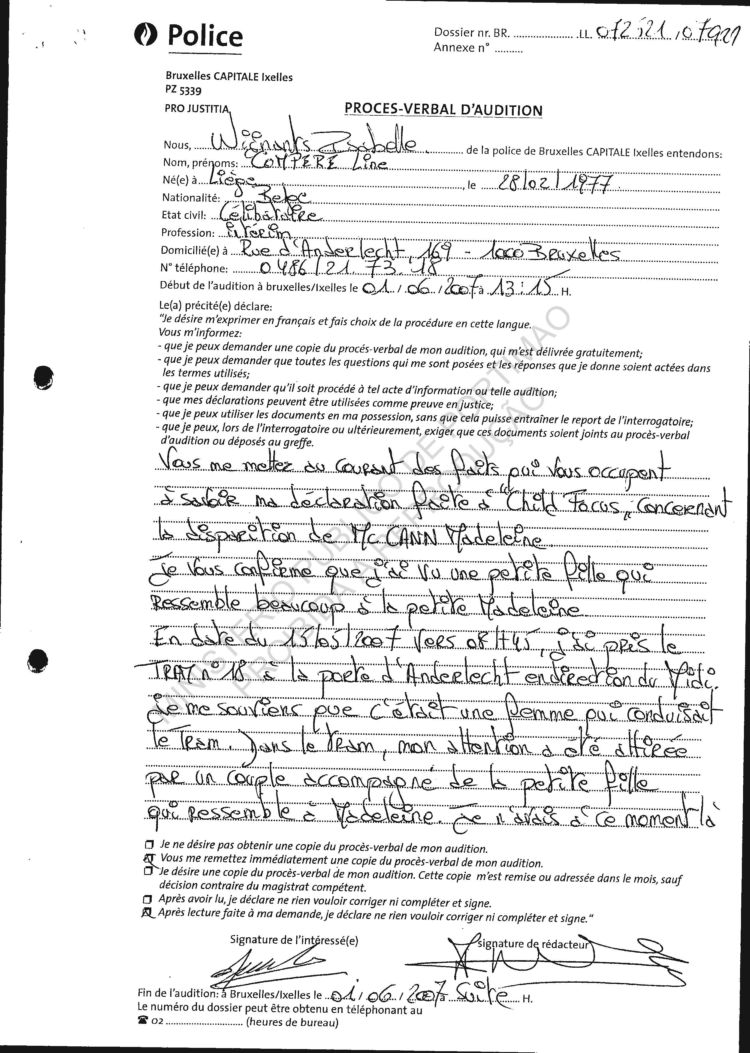 Police
Dossier nr. BR. .................... LL 072121 /07921
Annexe n° ..........
Bruxelles CAPITALE Ixelles
PZ 5339
PRO JUSTITIA
PROCES-VERBAL D'AUDITION
Nous, Wignants Isabelle de la police de Bruxelles CAPITALE Ixelles entendons:
Nom, prénoms: COMPERE Line
Né(e) à Liège, le 28/02/1977.
Nationalité: Belge
Etat civil: Célibataire
Profession: interim
Domicilié(e) à Rue d'Anderlecht, 169 - 1000 Bruxelles
N° téléphone: 0486/21.73.18
Début de l'audition à bruxelles/Ixelles le 01/06/2007 à 13:15 H.
Le(a) précité(e) déclare:
"Je désire m'exprimer en français et fais choix de la procédure en cette langue.
Vous m'informez:
- que je peux demander une copie du procés-verbal de mon audition, qui m'est délivrée gratuitement;
- que je peux demander que toutes les questions qui me sont posées et les réponses que je donne soient actées dans
les termes utilisés;
- que je peux demander qu'il soit procédé à tel acte d'information ou telle audition;
- que mes déclarations peuvent être utilisées comme preuve en justice;
- que je peux utiliser les documents en ma possession, sans que cela puisse entraîner le report de l'interrogatoire;
- que je peux, lors de l'interrogatoire ou ultérieurement, exiger que ces documents soient joints au procès-verbal
d'audition ou déposés au greffe.
Vous me mettez au courant des faits qui vous occupent
à savoir ma déclaration faite à "Child Focus" concernant
la disparition de Mc CANN Madeleine
Je vous confirme que j'ai vu une petite fille qui
ressemble beaucoup à la petite Madeleine
En date du 15/05/2007 vers 08H45, j'ai pris le
TRAM n°18 à la porte d'Anderlecht en direction du Midi.
Je me souviens que c'était une femme qui conduisait
le Tram. Dans le tram, mon attention a été attirée
par un couple accompagné de la petite fille
qui ressemble à Madeleine. Je n'avais à ce moment là
Je ne désire pas obtenir une copie du procès-verbal de mon audition.
Vous me remettez immédiatement une copie du procès-verbal de mon audition.
Je désire une copie du procès-verbal de mon audition. Cette copie m'est remise ou adressée dans le mois, sauf
décision contraire du magistrat compétent.
Après avoir lu, je déclare ne rien vouloir corriger ni compléter et signe.
Après lecture faite à ma demande, je déclare ne rien vouloir corriger ni compléter et signe."
Signature de l'intéressé(e)
signature de rédacteur
Fin de l'audition: à Bruxelles/Ixelles le 01/06/2007 Suite H.
Le numéro du dossier peut être obtenu en téléphonant au
☎ 02 .......................... (heures de bureau)
MINISTERIO PUBLICO DE PORTIMAO
PROIBIDA A REPRODUÇÃO